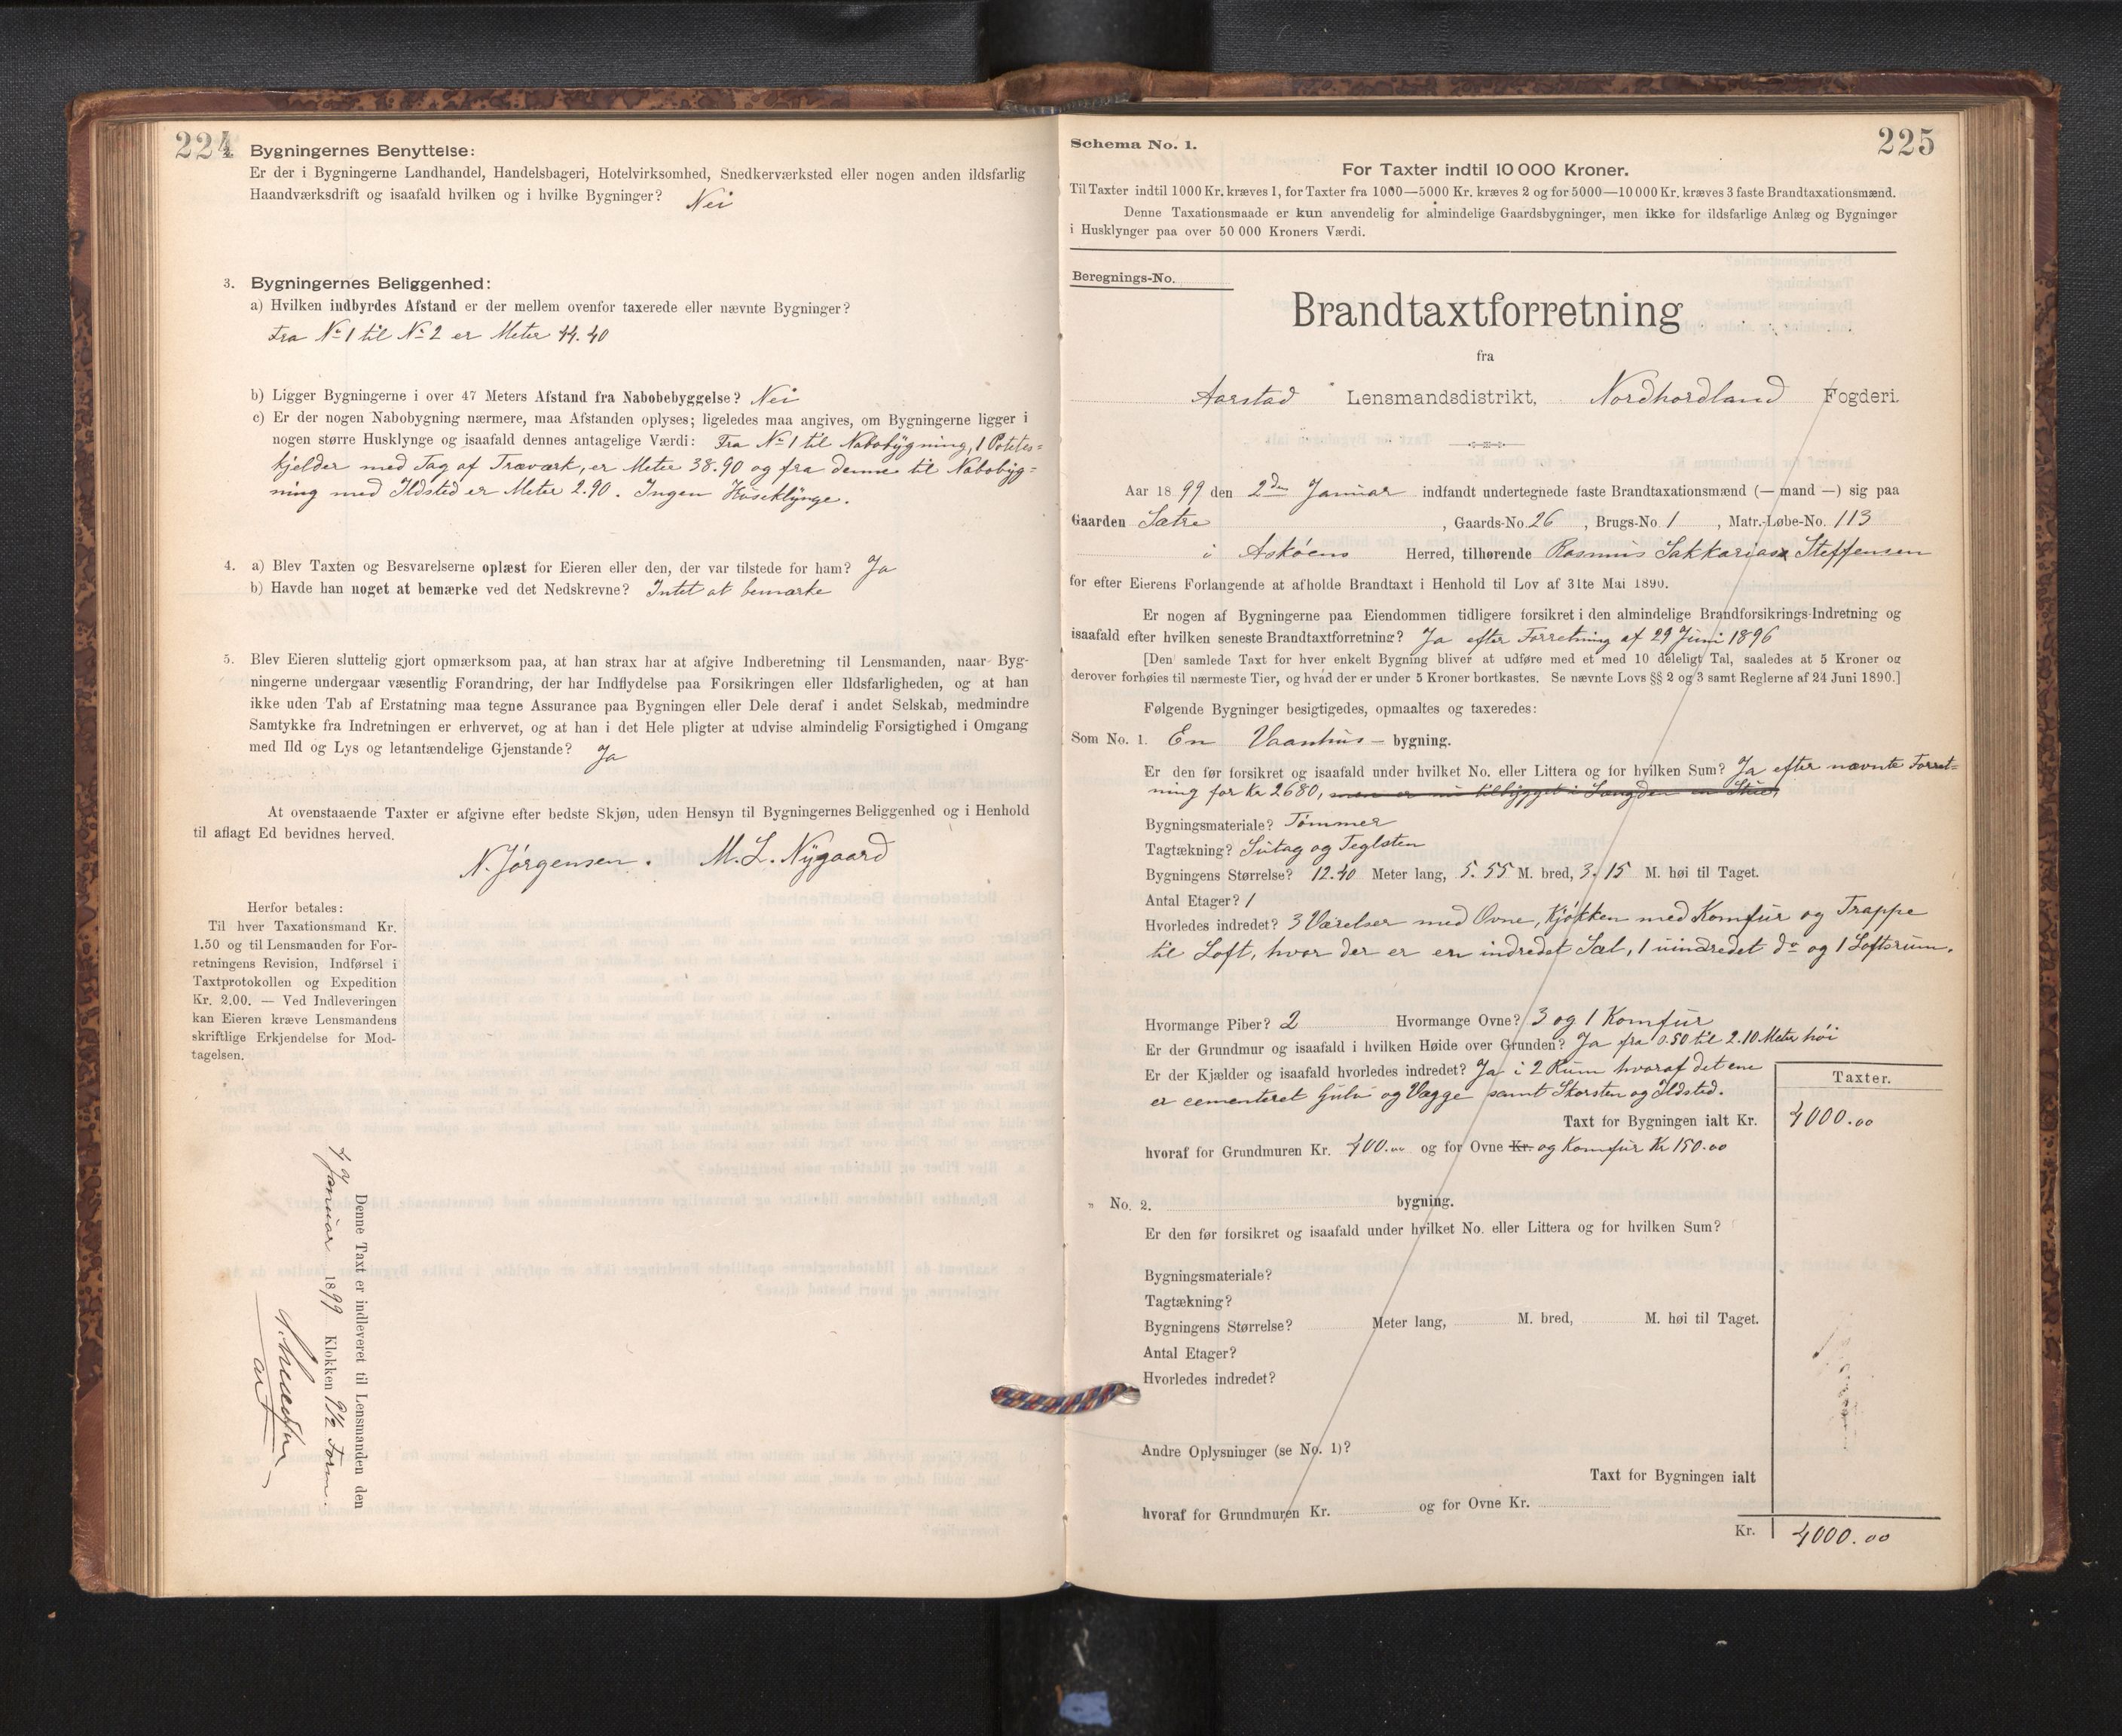 224
Bygningernes Benyttelse:
Er der i Bygningerne Landhandel, Handelsbageri, Hotelvirksomhed, Snedkerværksted eller nogen anden ildsfarlig
Haandværksdrift og isaafald hvilken og i hvilke Bygninger? Nei
3. Bygningernes Beliggenhed:
a) Hvilken indbyrdes Afstand er der mellem ovenfor taxerede eller nævnte Bygninger?
Fra No 1 til No 2 er Meter 44.40
b) Ligger Bygningerne i over 47 Meters Afstand fra Nabobebyggelse? Nei
c) Er der nogen Nabobygning nærmere, maa Afstanden oplyses; ligeledes maa angives, om Bygningerne ligger i
nogen større Husklynge og isaafald dennes antagelige Værdi: Fra No 1 til Nabobygning, 1 Potetes=
kjelder med Tag af Træværk, er Meter 38.90 og fra denne til Nabobyg=
ning med Ildsted er Meter 2.90. Ingen Huseklynge.
4. a) Blev Taxten og Besvarelserne oplæst for Eieren eller den, der var tilstede for ham? Ja
b) Havde han noget at bemærke ved det Nedskrevne? Intet at bemærke
5. Blev Eieren sluttelig gjort opmærksom paa, at han strax har at afgive Indberetning til Lensmanden, naar Byg-
ningerne undergaar væsentlig Forandring, der har Indflydelse paa Forsikringen eller Ildsfarligheden, og at han
ikke uden Tab af Erstatning maa tegne Assurance paa Bygningen eller Dele deraf i andet Selskab, medmindre
Samtykke fra Indretningen er erhvervet, og at han i det Hele pligter at udvise almindelig Forsigtighed i Omgang
med Ild og Lys og letantændelige Gjenstande? Ja
At ovenstaaende Taxter er afgivne efter bedste Skjøn, uden Hensyn til Bygningernes Beliggenhed og i Henhold
til aflagt Ed bevidnes herved.
N. Jørgensen. M. L. Nygaard
Herfor betales:
Til hver Taxationsmand Kr.
1.50 og til Lensmanden for For-
retningens Revision, Indførsel i
Taxtprotokollen og Expedition
Kr. 2.00. — Ved Indleveringen
kan Eieren kræve Lensmandens
skriftlige Erkjendelse for Mod-
tagelsen.
Denne Taxt er indleveret til Lensmanden den
4 Januar 1899 Klokken 9½ Form.
225
Schema No. 1.
For Taxter indtil 10 000 Kroner.
Til Taxter indtil 1000 Kr. kræves 1, for Taxter fra 1000—5000 Kr. kræves 2 og for 5000—10 000 Kr. kræves 3 faste Brandtaxationsmænd.
Denne Taxationsmaade er kun anvendelig for almindelige Gaardsbygninger, men ikke for ildsfarlige Anlæg og Bygninger
i Husklynger paa over 50 000 Kroners Værdi.
Beregnings-No.
Brandtaxtforretning
fra
Aarstad Lensmandsdistrikt, Nordhordland Fogderi.
Aar 1899 den 2den Januar indfandt undertegnede faste Brandtaxationsmænd (— mand —) sig paa
Gaarden Sætre, Gaards-No. 26, Brugs-No. 1, Matr.-Løbe-No. 113
i Askøens Herred, tilhørende Rasmus Sakkarias Steffensen
for efter Eierens Forlangende at afholde Brandtaxt i Henhold til Lov af 31te Mai 1890.
Er nogen af Bygningerne paa Eiendommen tidligere forsikret i den almindelige Brandforsikrings-Indretning og
isaafald efter hvilken seneste Brandtaxtforretning? Ja efter Forretning af 29 Juni 1896
[Den samlede Taxt for hver enkelt Bygning bliver at udføre med et med 10 deleligt Tal, saaledes at 5 Kroner og
derover forhøies til nærmeste Tier, og hvad der er under 5 Kroner bortkastes. Se nævnte Lovs §§ 2 og 3 samt Reglerne af 24 Juni 1890.]
Følgende Bygninger besigtigedes, opmaaltes og taxeredes:
Som No. 1. En Vaanhus- bygning.
Er den før forsikret og isaafald under hvilket No. eller Littera og for hvilken Sum? Ja efter nævnte Forret=
ning for Kr 2680, men er nu tilbygget i Længden en
Bygningsmateriale? Tømmer
Tagtækning? Sutag og Teglsten
Bygningens Størrelse? 12.40 Meter lang, 5.55 M. bred, 3.15 M. høi til Taget.
Antal Etager? 1
Hvorledes indredet? 3 Værelser med Ovne, Kjøkken med Komfur og Trappe
til Loft, hvor der er en indredet Sal, 1 uindredet do og 1 Loftsrum.
Hvormange Piber? 2 Hvormange Ovne? 3 og 1 Komfur
Er der Grundmur og isaafald i hvilken Høide over Grunden? Ja fra 0.50 til 2.10 Meter høi
Er der Kjælder og isaafald hvorledes indredet? Ja i 2 Rum hvoraf det ene
er cementeret Gulv og Vægge samt Skorsten og Ildsted.
Taxter.
Taxt for Bygningen ialt Kr. 4000.00
hvoraf for Grundmuren Kr. 400.00 og for Ovne Kr. og Komfur Kr 150.00
" No. 2. bygning.
Er den før forsikret og isaafald under hvilket No. eller Littera og for hvilken Sum?
Bygningsmateriale?
Tagtækning?
Bygningens Størrelse? Meter lang, M. bred, M. høi til Taget.
Antal Etager?
Hvorledes indredet?
Andre Oplysninger (se No. 1)?
Taxt for Bygningen ialt
hvoraf for Grundmuren Kr. og for Ovne Kr.
Kr. 4000.00